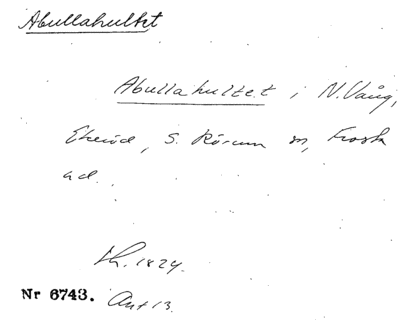 Abullahultet
Abullahultet i N. Vång,
Ekeröd, S. Rörum sn, Frosta
hd.
Lh. 1824.
Nr 6743. Ant 13.